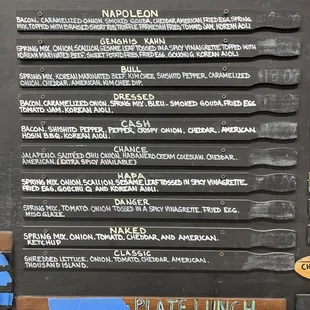 NAPOLEON
BACON, CARAMELIZED ONION, SMOKED GOUDA, CHEDDAR, AMERICAN, FRIED EGG, SPRING
MIX TOPPED WITH BRAISED SHORT RIB, TRUFFLE PARMESAN FRIES TOMATO JAM, KOREAN AIOLI
GENGHIS KAHN
SPRING MIX, ONION, SCALLION, SESAME LEAF TOSSED IN A SPICY VINAGRETTE TOPPED WITH
KOREAN MARINATED BEEF, SWEET POTATO FRIES, FRIED EGG, GOCHU & KOREAN AIOLI.
BULL
SPRING MIX, KOREAN MARINATED BEEF, KIM CHEE, SHISHITO PEPPER, CARAMELIZED
ONION, CHEDDAR, AMERICAN, KIM CHEE DIP.
18.00
DRESSED
BACON, CARAMELIZED ONION, SPRING MIX, BLEU, SMOKED GOUDA, FRIED EGG
TOMATO JAM, KOREAN AIOLI.
CASH
BACON, SHISHITO PEPPER, PEPPER, CRISPY ONION, CHEDDAR, AMERICAN,
HOISIN B.B.Q. KOREAN AIOLI.
CHANCE
JALAPENO, SAUTEED CHILI ONION, HABANERO CREAM COLESLAW, CHEDDAR,
AMERICAN. (EXTRA SPICY AVAILABLE)
HAPA
SPRING MIX, ONION, SCALLION, SESAME LEAF TOSSED IN SPICY VINAGRETTE,
FRIED EGG, GOCHU & AND KOREAN AIOLI.
DANGER
SPRING MIX, TOMATO, ONION TOSSED IN A SPICY VINAGRETTE, FRIED EGG,
MISO GLAZE.
NAKED
SPRING MIX, ONION, TOMATO, CHEDDAR, AND AMERICAN.
KETCHUP
CLASSIC
SHREDDED LETTUCE, ONION, TOMATO, CHEDDAR, AMERICAN,
THOUSAND ISLAND.
PLATE LUNCH